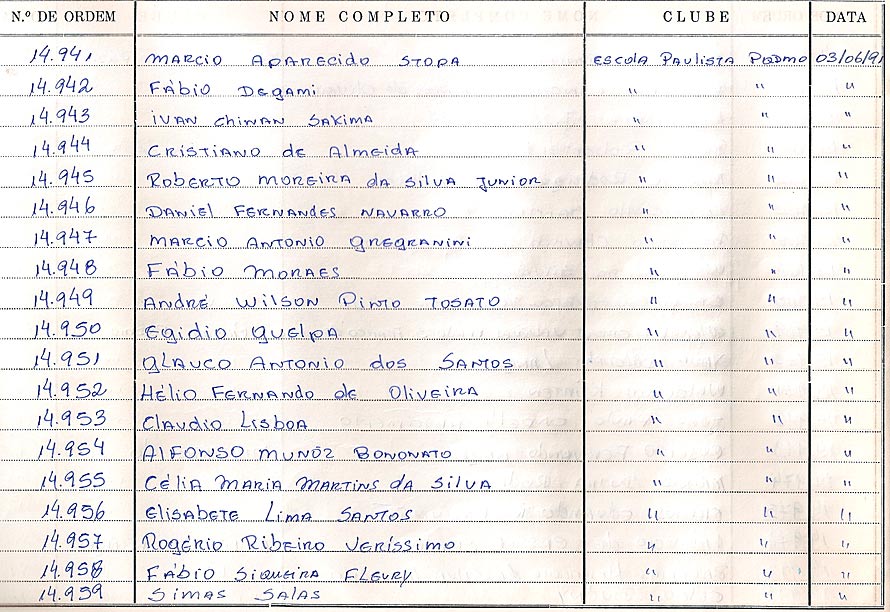 N.º DE ORDEM NOME COMPLETO CLUBE DATA
14.941 MARCIO APARECIDO STOPA ESCOLA PAULISTA PQDMO 03/06/91
14.942 FÁBIO DEGAMI " " "
14.943 IVAN CHINAN SAKIMA " " "
14.944 CRISTIANO DE ALMEIDA " " "
14.945 ROBERTO MOREIRA DA SILVA JUNIOR " " "
14.946 DANIEL FERNANDES NAVARRO " " "
14.947 MARCIO ANTONIO GREGRANINI " " "
14.948 FÁBIO MORAES " " "
14.949 ANDRÉ WILSON PINTO TOSATO " " "
14.950 EGIDIO GUELPA " " "
14.951 GLAUCO ANTONIO DOS SANTOS " " "
14.952 HÉLIO FERNANDO DE OLIVEIRA " " "
14.953 CLAUDIO LISBOA " " "
14.954 ALFONSO MUNÕZ BONONATO " " "
14.955 CÉLIA MARIA MARTINS DA SILVA " " "
14.956 ELISABETE LIMA SANTOS " " "
14.957 ROGÉRIO RIBEIRO VERÍSSIMO " " "
14.958 FÁBIO SIQUEIRA FLEURY " " "
14.959 SIMAS SALAS " " "